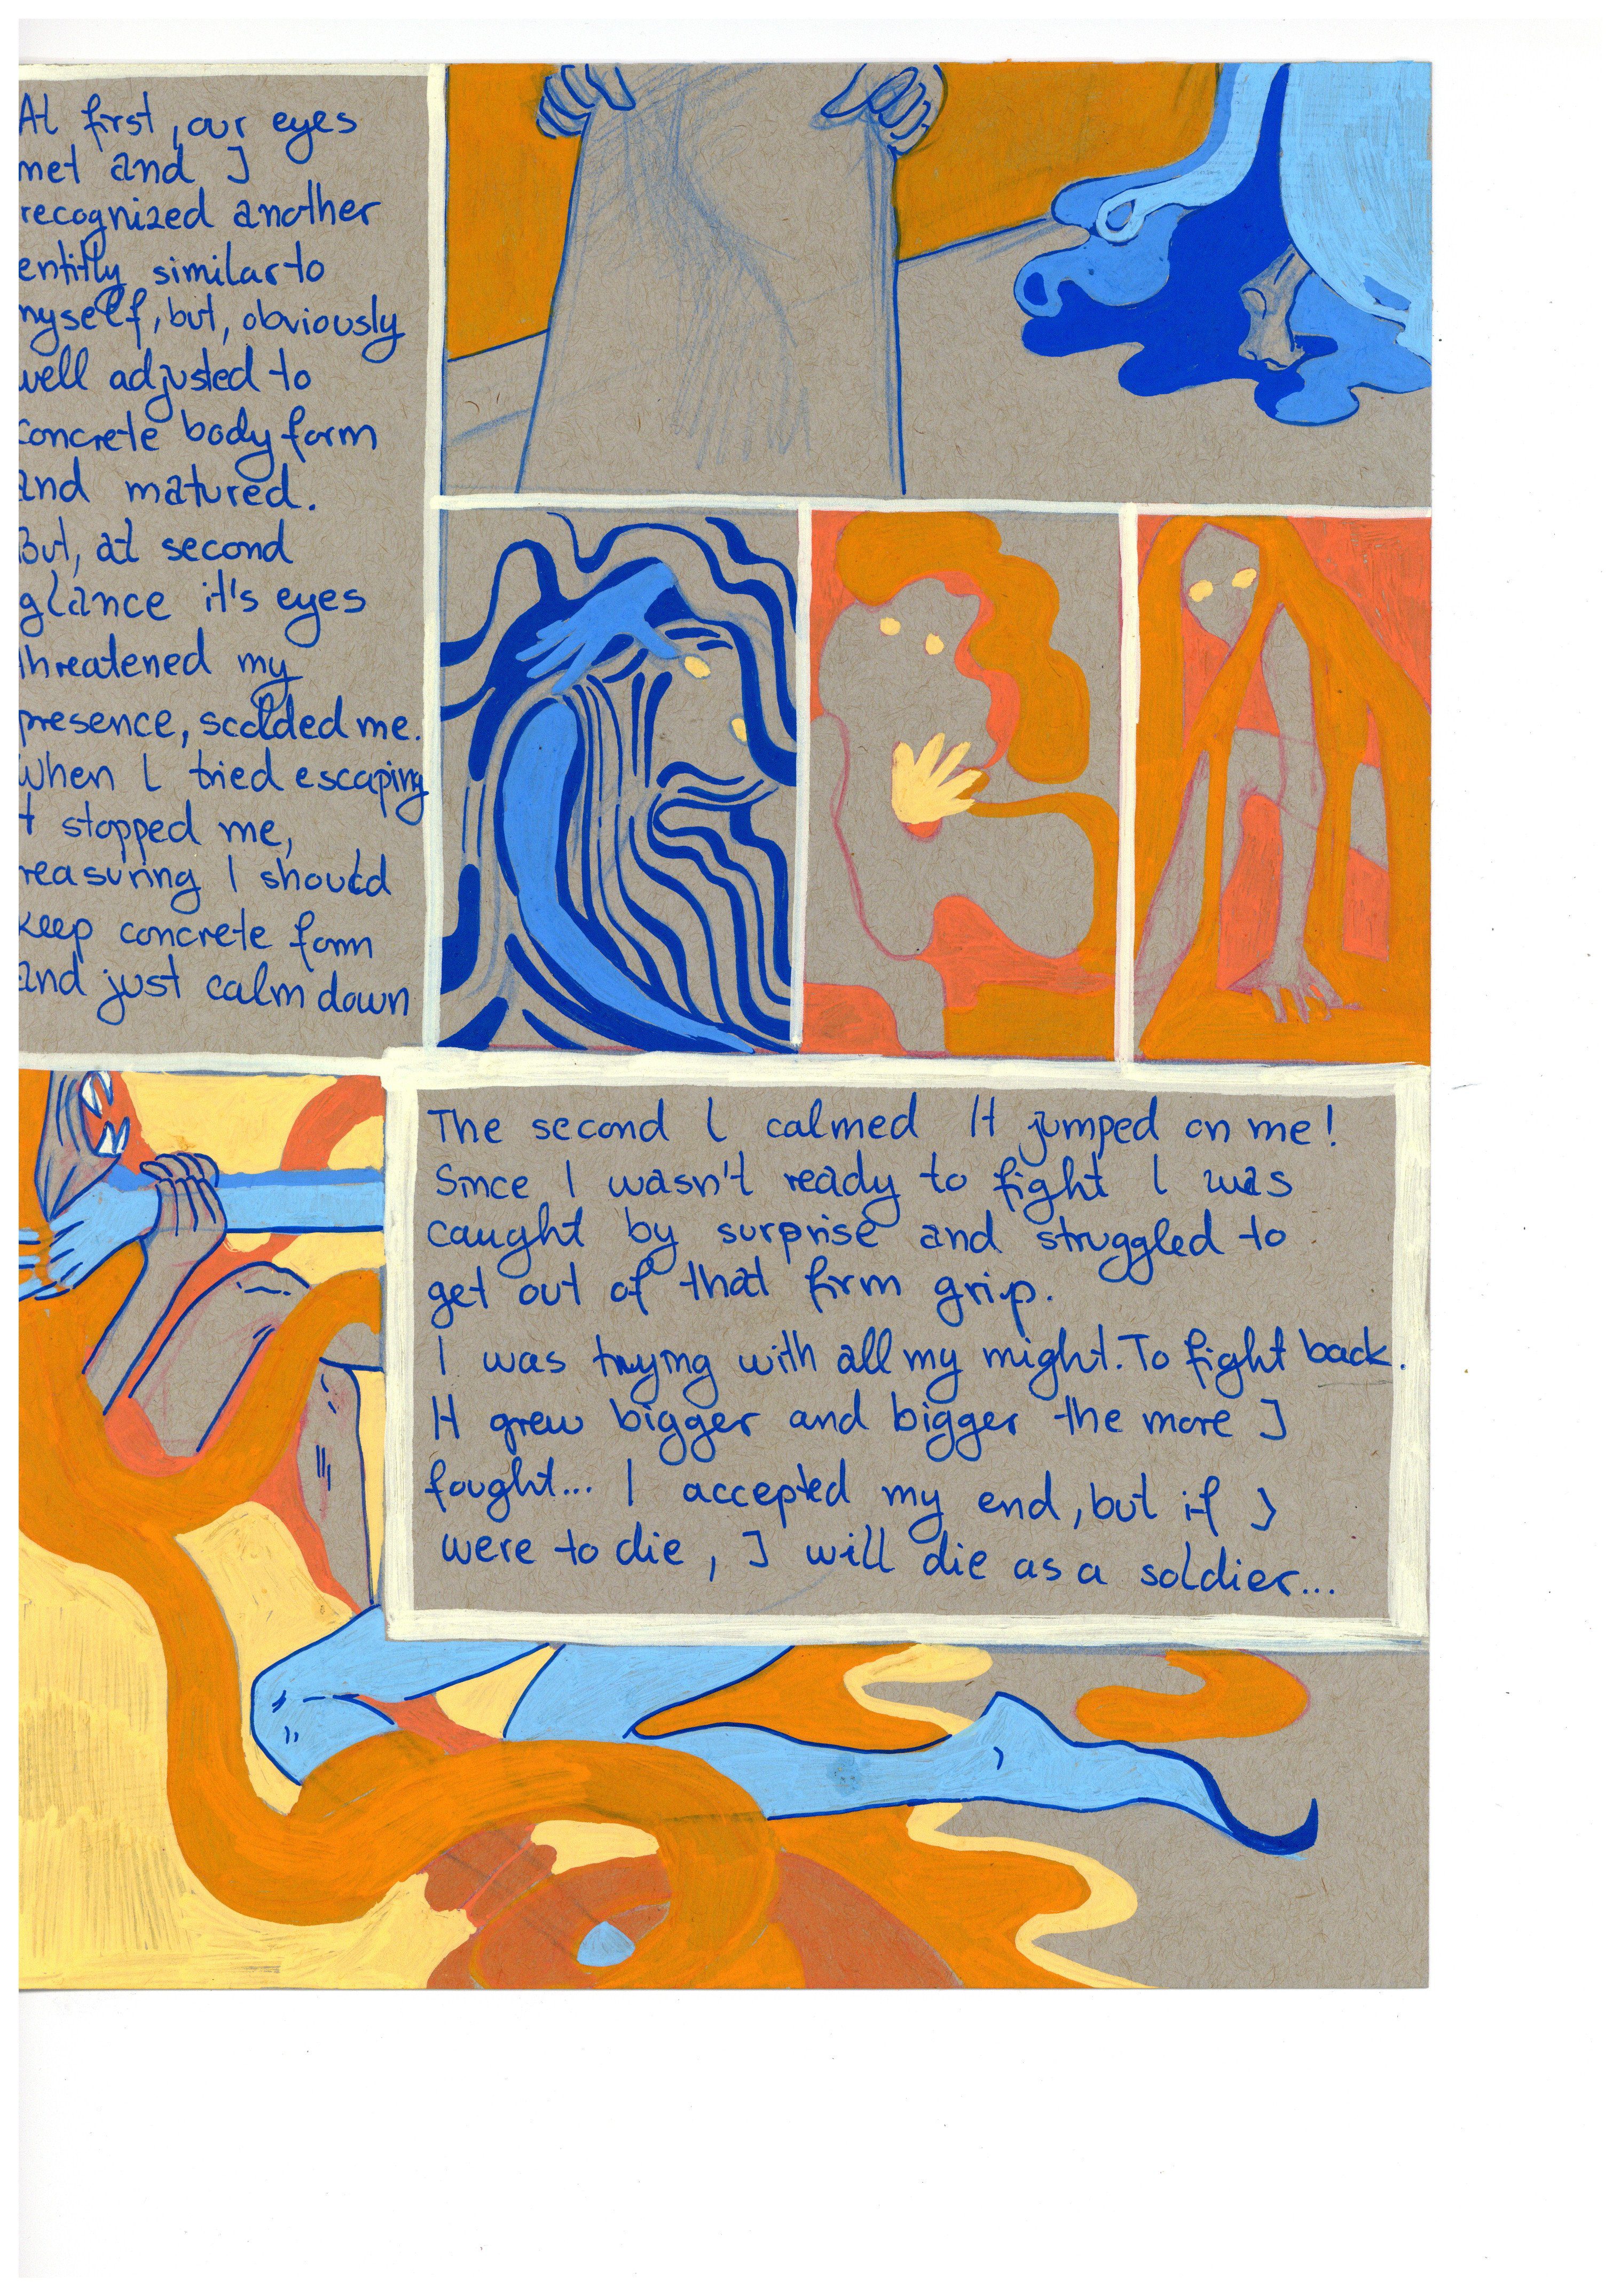 At first, our eyes
met and I
recognized another
entitly similar to
myself, but, obviously
well adjusted to
concrete body form
and matured.
But, at second
glance it's eyes
threatened my
presence, scolded me.
When I tried escaping
It stopped me,
reasuring I should
keep concrete form
and just calm down
The second I calmed It jumped on me!
Since I wasn't ready to fight I was
caught by surprise and struggled to
get out of that firm grip.
I was trying with all my might. To fight back.
It grew bigger and bigger the more I
fought... I accepted my end, but if I
were to die, I will die as a soldier...